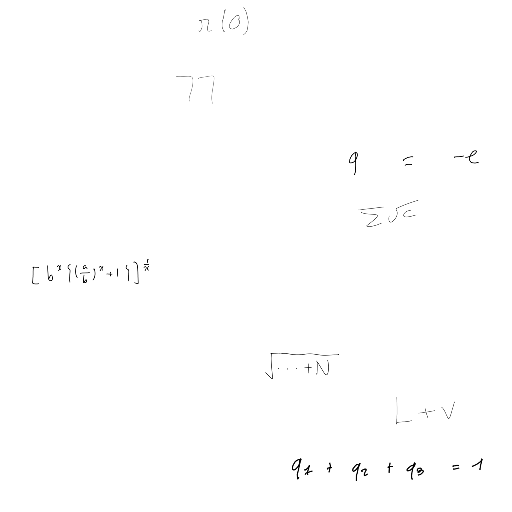 x(0)
77
q = -e
∑√c
[b^x{(a/b)^x+1}]^{1/x}
√(⋯+N)
L+V
q_1 + q_2 + q_3 = 1